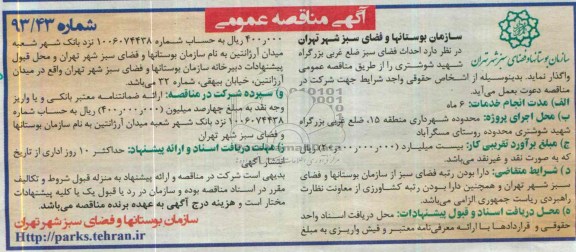 آگهی مناقصه عمومی
شماره ۹۳/۴۳
سازمان بوستانها و فضای سبز شهر تهران
سازمان بوستانها و فضای سبز شهر تهران
در نظر دارد احداث فضای سبز ضلع غربی بزرگراه
شهید شوشتری را از طریق مناقصه عمومی
واگذار نماید. بدینوسیله از اشخاص حقوقی واجد شرایط جهت شرکت در
مناقصه دعوت بعمل می‌آید.
الف) مدت انجام خدمات: ۶ ماه
ب) محل اجرای پروژه: محدوده شهرداری منطقه ۱۵، ضلع غربی بزرگراه
شهید شوشتری محدوده روستای مسگرآباد
ج) مبلغ برآورد تقریبی کار: بیست میلیارد ریال
که به صورت نقد و غیرنقد می‌باشد.
د) شرایط متقاضی: دارا بودن رتبه فضای سبز از سازمان بوستانها و فضای
سبز شهر تهران و همچنین دارا بودن رتبه کشاورزی از معاونت نظارت
راهبردی ریاست جمهوری الزامی می‌باشد.
ه) محل دریافت اسناد و قبول پیشنهادات: محل دریافت اسناد واحد
حقوقی و قراردادها با ارائه معرفی‌نامه معتبر و فیش واریزی به مبلغ
۴۰۰٫۰۰۰ ریال به حساب شماره ۱۰۰۶۰۷۴۴۳۸ نزد بانک شهر شعبه
میدان آرژانتین به نام سازمان بوستانها و فضای سبز شهر تهران و محل قبول
پیشنهادات دبیرخانه سازمان بوستانها و فضای سبز شهر تهران واقع در میدان
آرژانتین، خیابان بیهقی، شماره ۳۲ می‌باشد.
و) سپرده شرکت در مناقصه: ارائه ضمانتنامه معتبر بانکی و یا واریز
وجه نقد به مبلغ چهارصد میلیون (۴۰۰٫۰۰۰٫۰۰۰) ریال به حساب شماره
۱۰۰۶۰۷۴۴۳۸ نزد بانک شهر شعبه میدان آرژانتین به نام سازمان بوستانها
و فضای سبز شهر تهران
ز) مهلت دریافت اسناد و ارائه پیشنهاد: حداکثر ۱۰ روز اداری از تاریخ
انتشار آگهی
بدیهی است شرکت در مناقصه و ارائه پیشنهاد به منزله قبول شروط و تکالیف
مقرر در اسناد مناقصه بوده و سازمان در رد یا قبول یک یا کلیه پیشنهادات
مختار است و هزینه درج آگهی به عهده برنده مناقصه می‌باشد.
سازمان بوستانها و فضای سبز شهر تهران
Http://parks.tehran.ir